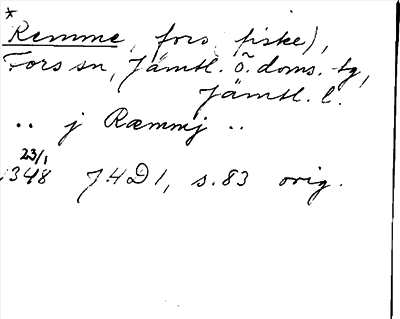 *
Remme, fors, fiske),
Fors sn, Jämtl. ö. doms. tg,
Jämtl. l.
.. j Ræmmj ..
23/1
1348 J4D1, s.83 orig.